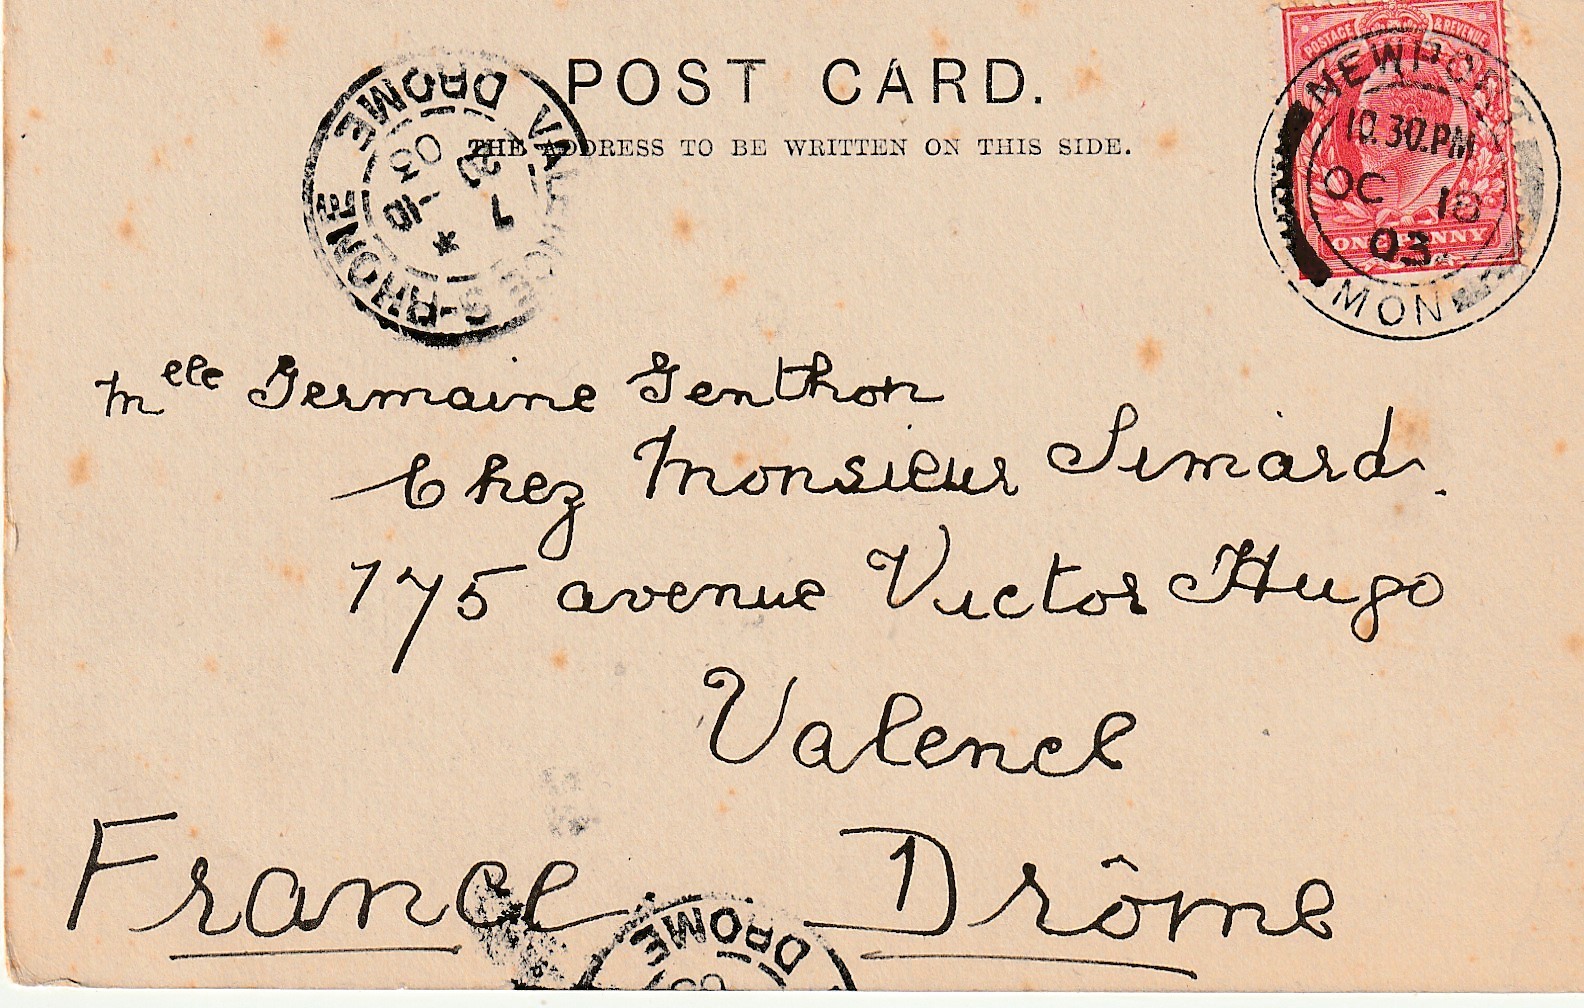 POST CARD.
THE ADDRESS TO BE WRITTEN ON THIS SIDE.
POSTAGE & REVENUE
ONE PENNY
NEWPORT
10.30.PM
OC 18
03
MON
VALENCE-S-RHONE
DROME
03
Melle Germaine Genthon
Chez Monsieur Simard.
175 avenue Victor Hugo
Valence
France Drôme
DROME